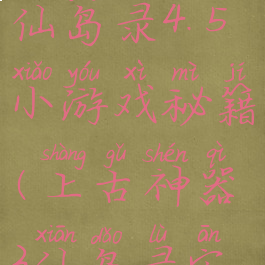 仙岛录4.5
xiǎo yóu xì mì jí
小游戏秘籍
shàng gǔ shén qì
(上古神器
xiān dǎo lù ān